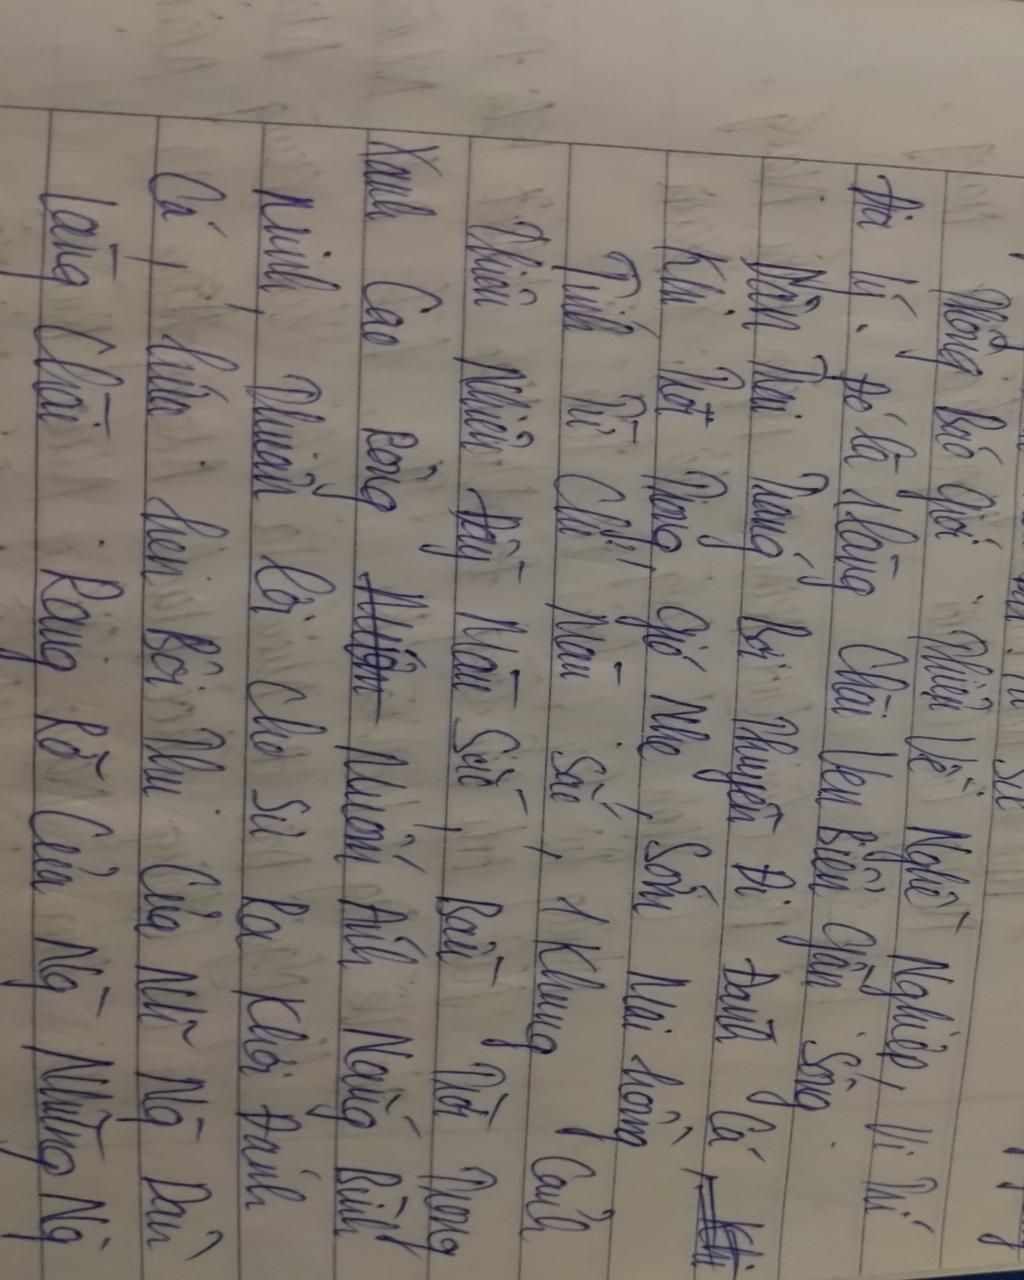 Thông báo giới thiệu về Nghề Nghiệp, Vị trí
địa lý. Đó là làng Chài Ven Biển Gần Sông.
Dân Trai Tráng Bơi Thuyền Đi Đánh Cá,
Khi Trời Trong, Gió Nhẹ, Sớm Mai hồng
Tính Từ Chỉ Màu Sắc, 1 Khung Cảnh
Thiên Nhiên đầy Màu Sắc, Bầu Trời Trong
Xanh Cao Rộng Nhuốm Ánh Nắng Bình
Minh, Thuận lợi Cho Sự Ra Khơi Đánh
Cá, hứa hẹn Bội Thu Của Nữ Ng Dân
làng Chài. Rạng Rỡ Của Ng Những Ng